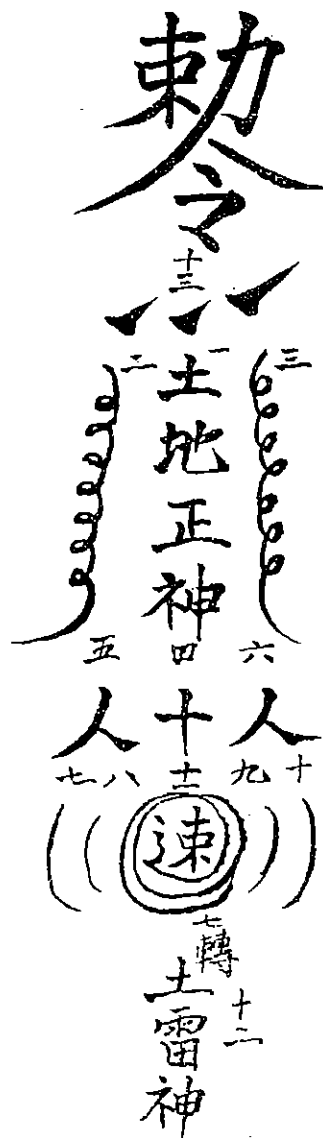 勅令
十三
二 一 三
土地正神
五 四 六
人 十 人
七 八 十一 九 十
速
七轉
十二
土雷神